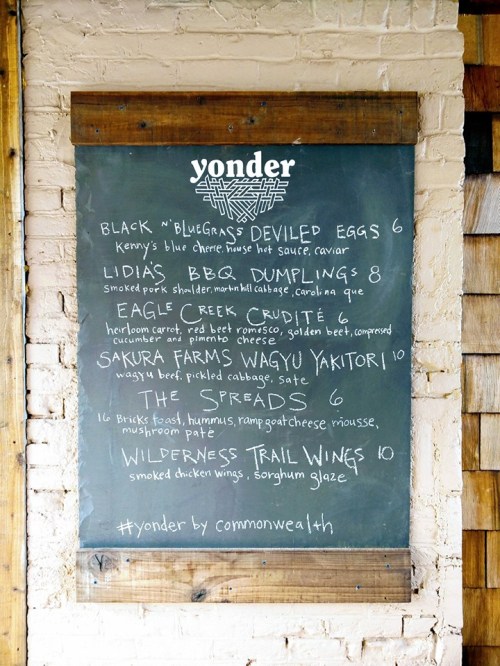 yonder
BLACK N' BLUEGRASS DEVILED EGGS 6
Kenny's blue cheese, house hot sauce, caviar
LIDIA'S BBQ DUMPLINGS 8
smoked pork shoulder, martin hill cabbage, carolina que
EAGLE CREEK CRUDITÉ 6
heirloom carrot, red beet romesco, golden beet, compressed
cucumber and pimento cheese
SAKURA FARMS WAGYU YAKITORI 10
wagyu beef, pickled cabbage, sate
THE SPREADS 6
16 Bricks toast, hummus, ramp goat cheese mousse,
mushroom pate
WILDERNESS TRAIL WINGS 10
smoked chicken wings, sorghum glaze
#yonder by commonwealth